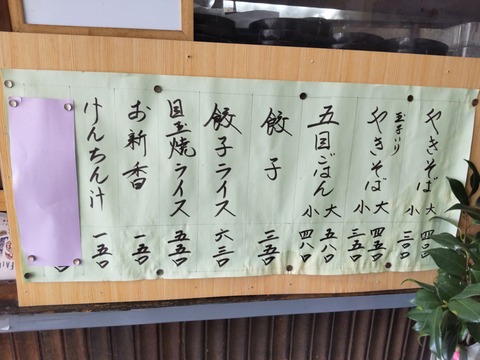 やきそば 大 四〇〇
小 三〇〇
玉子入り
やきそば 大 四五〇
小 三五〇
五目ごはん 大 五八〇
小 四八〇
餃子 三五〇
餃子ライス 六三〇
目玉焼ライス 五五〇
お新香 一五〇
けんちん汁 一五〇